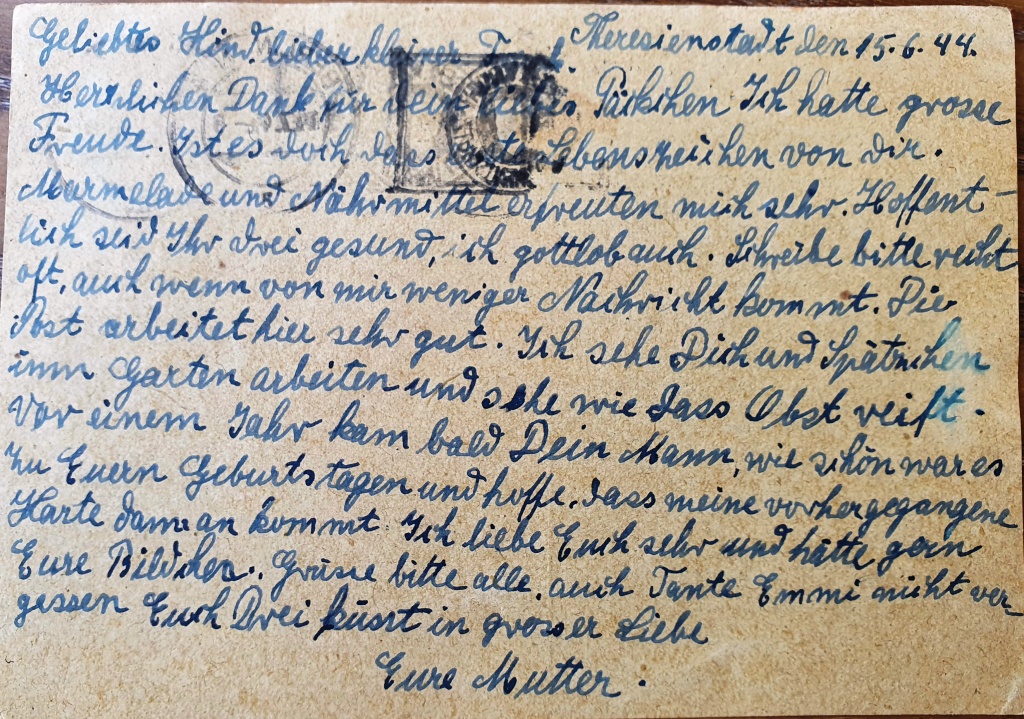 Geliebtes Kind, lieber kleiner Theresienstadt den 15.6.44.
Herzlichen Dank für dein liebes Päckchen Ich hatte grosse
Freude. Ist es doch dass erste Lebenszeichen von dir.
Marmelade und Nährmittel erfreuten mich sehr. Hoffent-
lich seid Ihr drei gesund, ich gottlob auch. Schreibe bitte recht
oft, auch wenn von mir weniger Nachricht kommt. Die
Post arbeitet hier sehr gut. Ich sehe Dich und
imm Garten arbeiten und sehe wie dass Obst reift.
Vor einem Jahr kam bald Dein Mann, wie schön war es
Zu Euern Geburtstagen und hoffe, dass meine vorhergegangene
Karte dann an kommt. Ich liebe Euch sehr und hätte gern
Eure Bildchen. Grüsse bitte alle, auch Tante Emmi nicht ver-
gessen Euch Drei küsst in grosser Liebe
Eure Mutter.